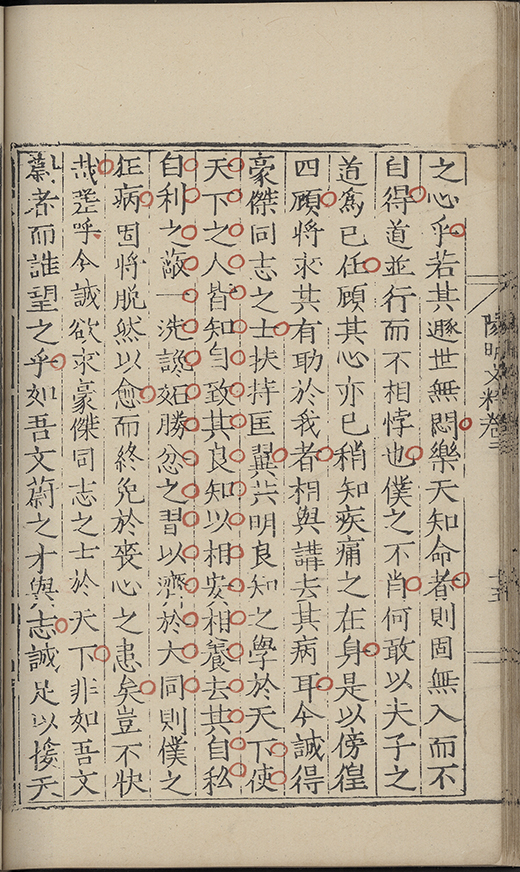 陽明文粹卷
之心乎若其遯世無悶樂天知命者則固無入而不
自得道並行而不相悖也僕之不肖何敢以夫子之
道爲已任顧其心亦已稍知疾痛之在身是以傍徨
四顧將求其有助於我者相與講去其病耳今誠得
豪傑同志之士扶持匡翼共明良知之學於天下使
天下之人皆知自致其良知以相安相養去其自私
自利之蔽一洗讒妬勝忿之習以濟於大同則僕之
狂病固將脫然以愈而終免於喪心之患矣豈不快
哉嗟呼今誠欲求豪傑同志之士於天下非如吾文
蔚者而誰望之乎如吾文蔚之才與志誠足以援天